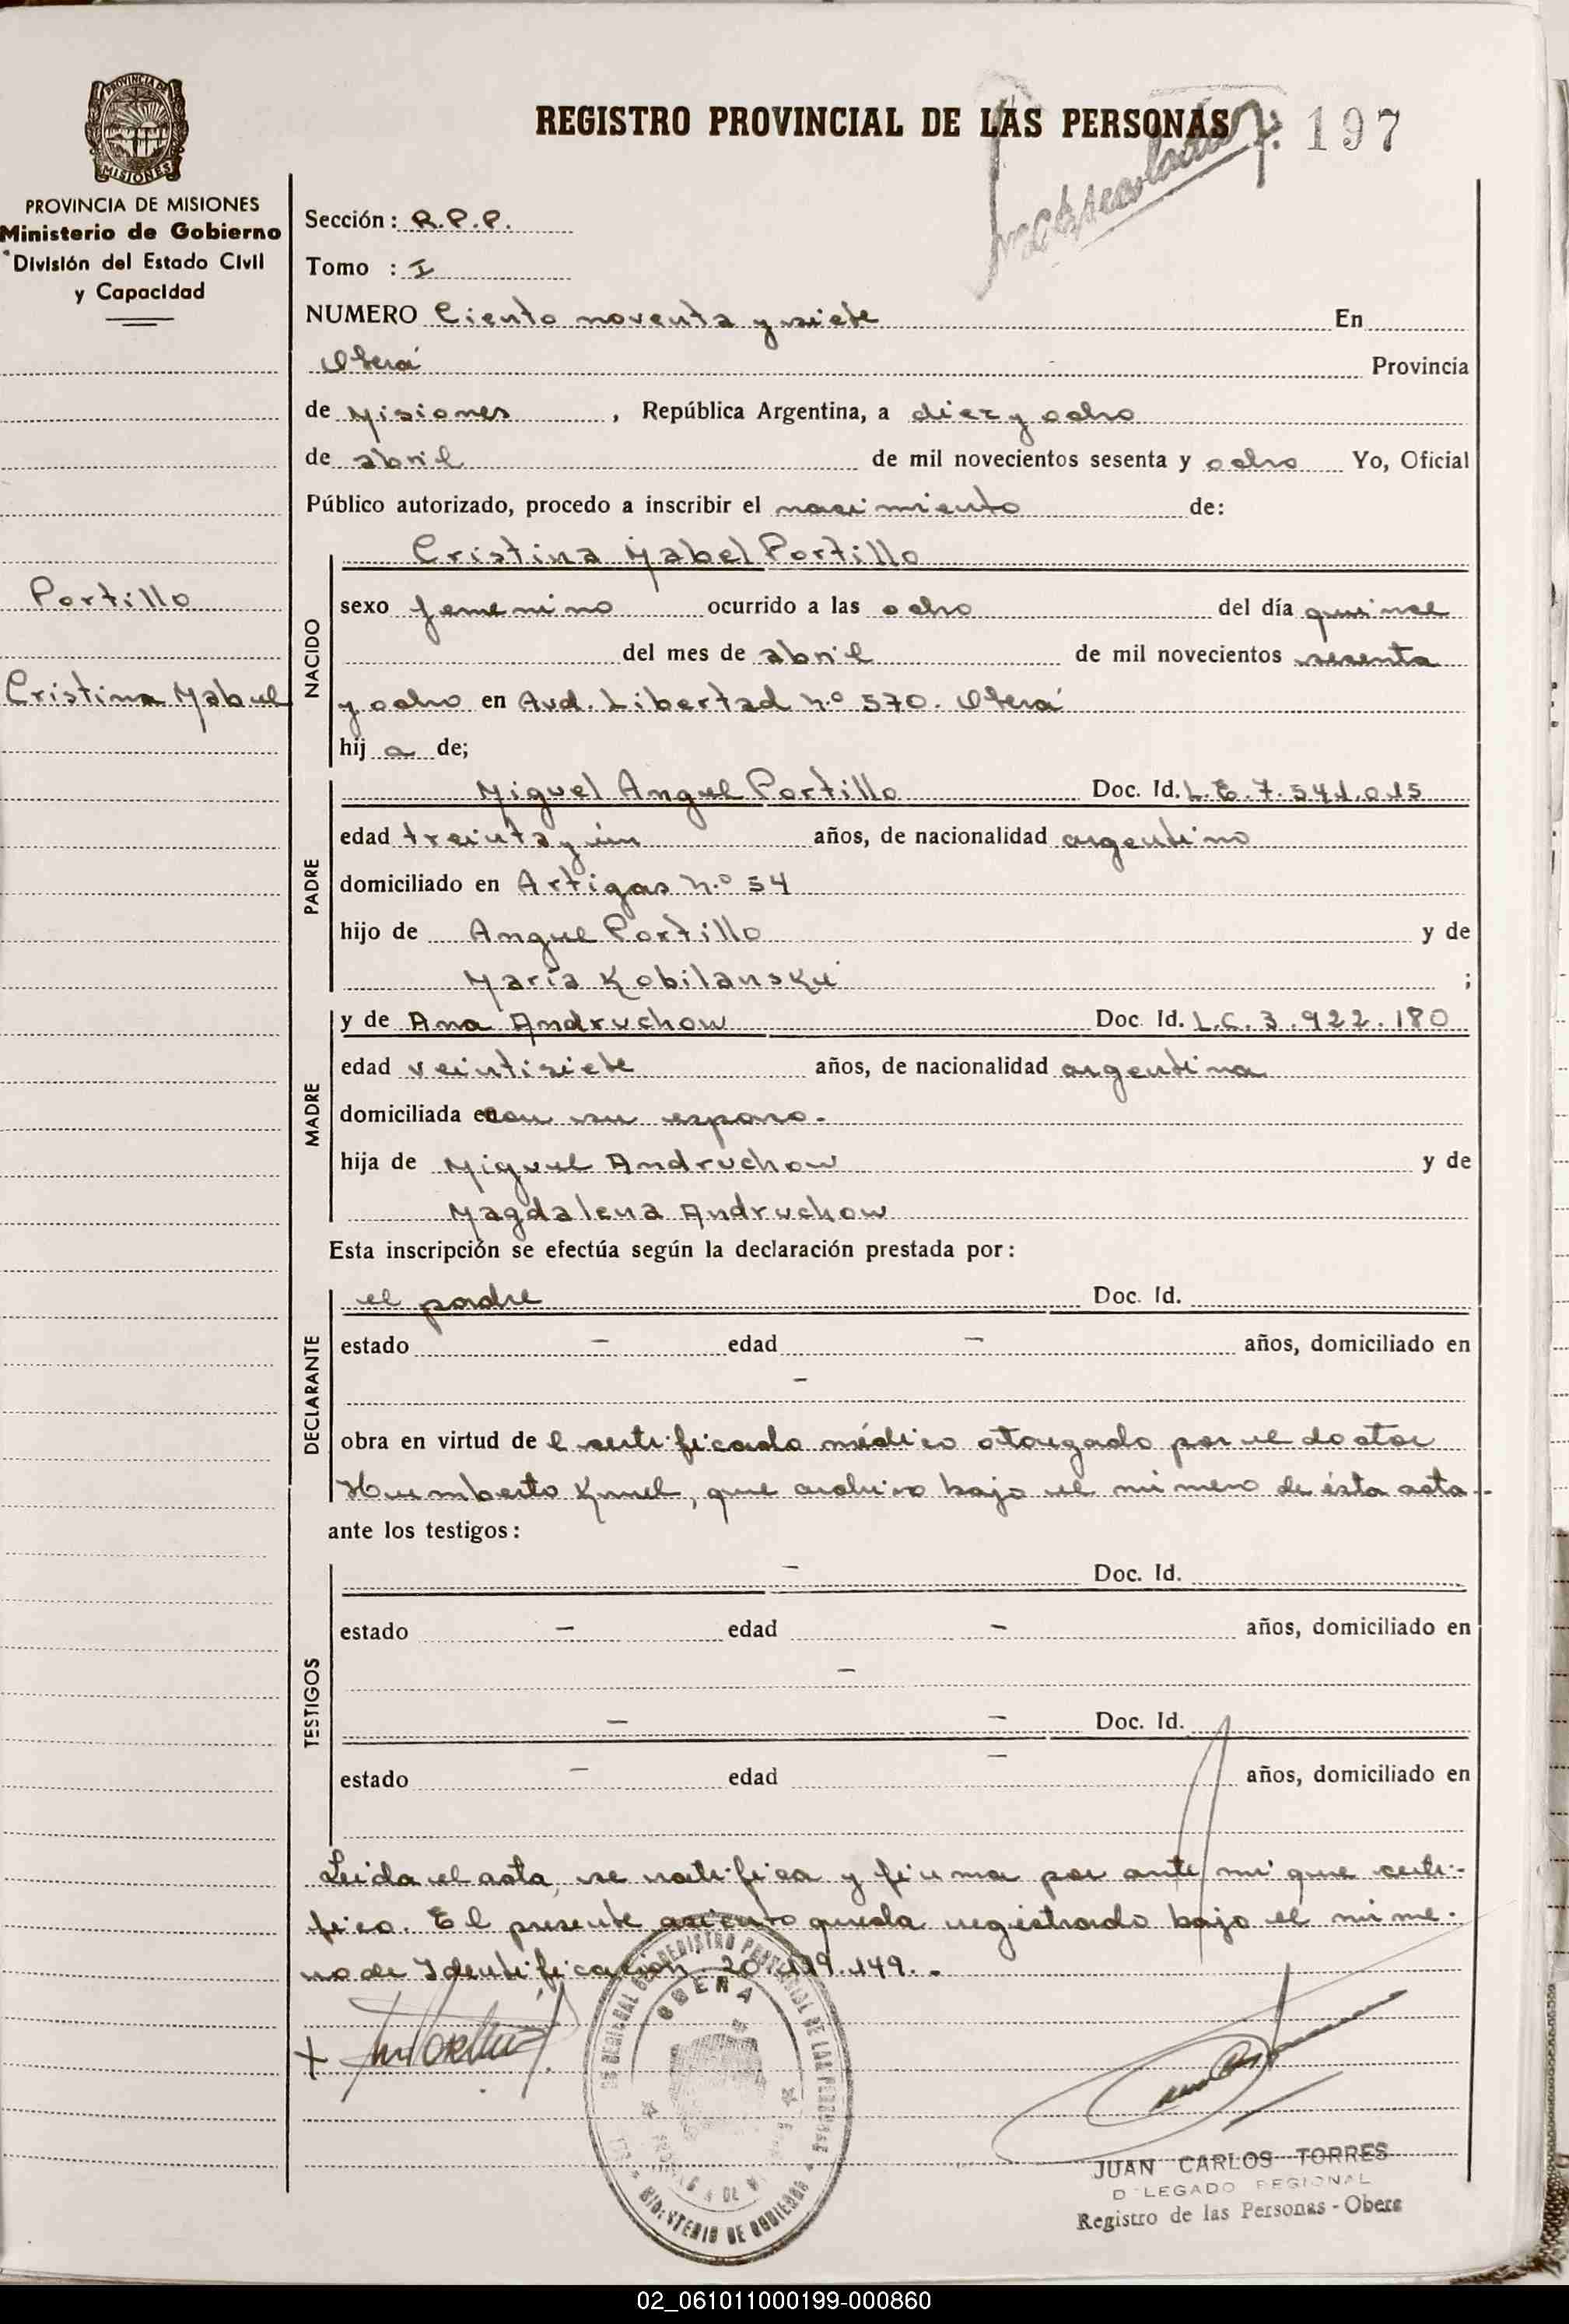 PROVINCIA DE
MISIONES
PROVINCIA DE MISIONES
Ministerio de Gobierno
División del Estado Civil
y Capacidad
Portillo
Cristina Mabel
REGISTRO PROVINCIAL DE LAS PERSONAS
197
Sección: R.P.P.
Tomo : I
NUMERO Ciento noventa y siete En
Oberá Provincia
de Misiones, República Argentina, a diez y ocho
de abril de mil novecientos sesenta y ocho Yo, Oficial
Público autorizado, procedo a inscribir el nacimiento de:
Cristina Mabel Portillo
NACIDO
sexo femenino ocurrido a las ocho del día quince
del mes de abril de mil novecientos sesenta
y ocho en Avd. Libertad n.º 570. Oberá
hij a de;
PADRE
Miguel Angel Portillo Doc. Id. L.E.7.541.015
edad treinta y ún años, de nacionalidad argentino
domiciliado en Artigas n.º 54
hijo de Angel Portillo y de
María Kobilanski ;
MADRE
y de Ana Andruchow Doc. Id. L.C.3.922.180
edad veintisiete años, de nacionalidad argentina
domiciliada en con su esposo.
hija de Miguel Andruchow y de
Magdalena Andruchow
Esta inscripción se efectúa según la declaración prestada por:
DECLARANTE
el padre Doc. Id.
estado - edad - años, domiciliado en
-
obra en virtud de l certificado médico otorgado por el doctor
Humberto, que archivo bajo el número de ésta acta.-
ante los testigos:
TESTIGOS
- Doc. Id.
estado - edad - años, domiciliado en
-
- - Doc. Id.
estado - edad - años, domiciliado en
Leida el acta, se ratifica y firma por ante mí que certi-
fico. El presente asiento queda registrado bajo el núme-
ro de Identificación 20.199.149.-
OBERA
MINISTERIO DE GOBIERNO
JUAN CARLOS TORRES
DELEGADO REGIONAL
Registro de las Personas - Obera
02_061011000199-000860